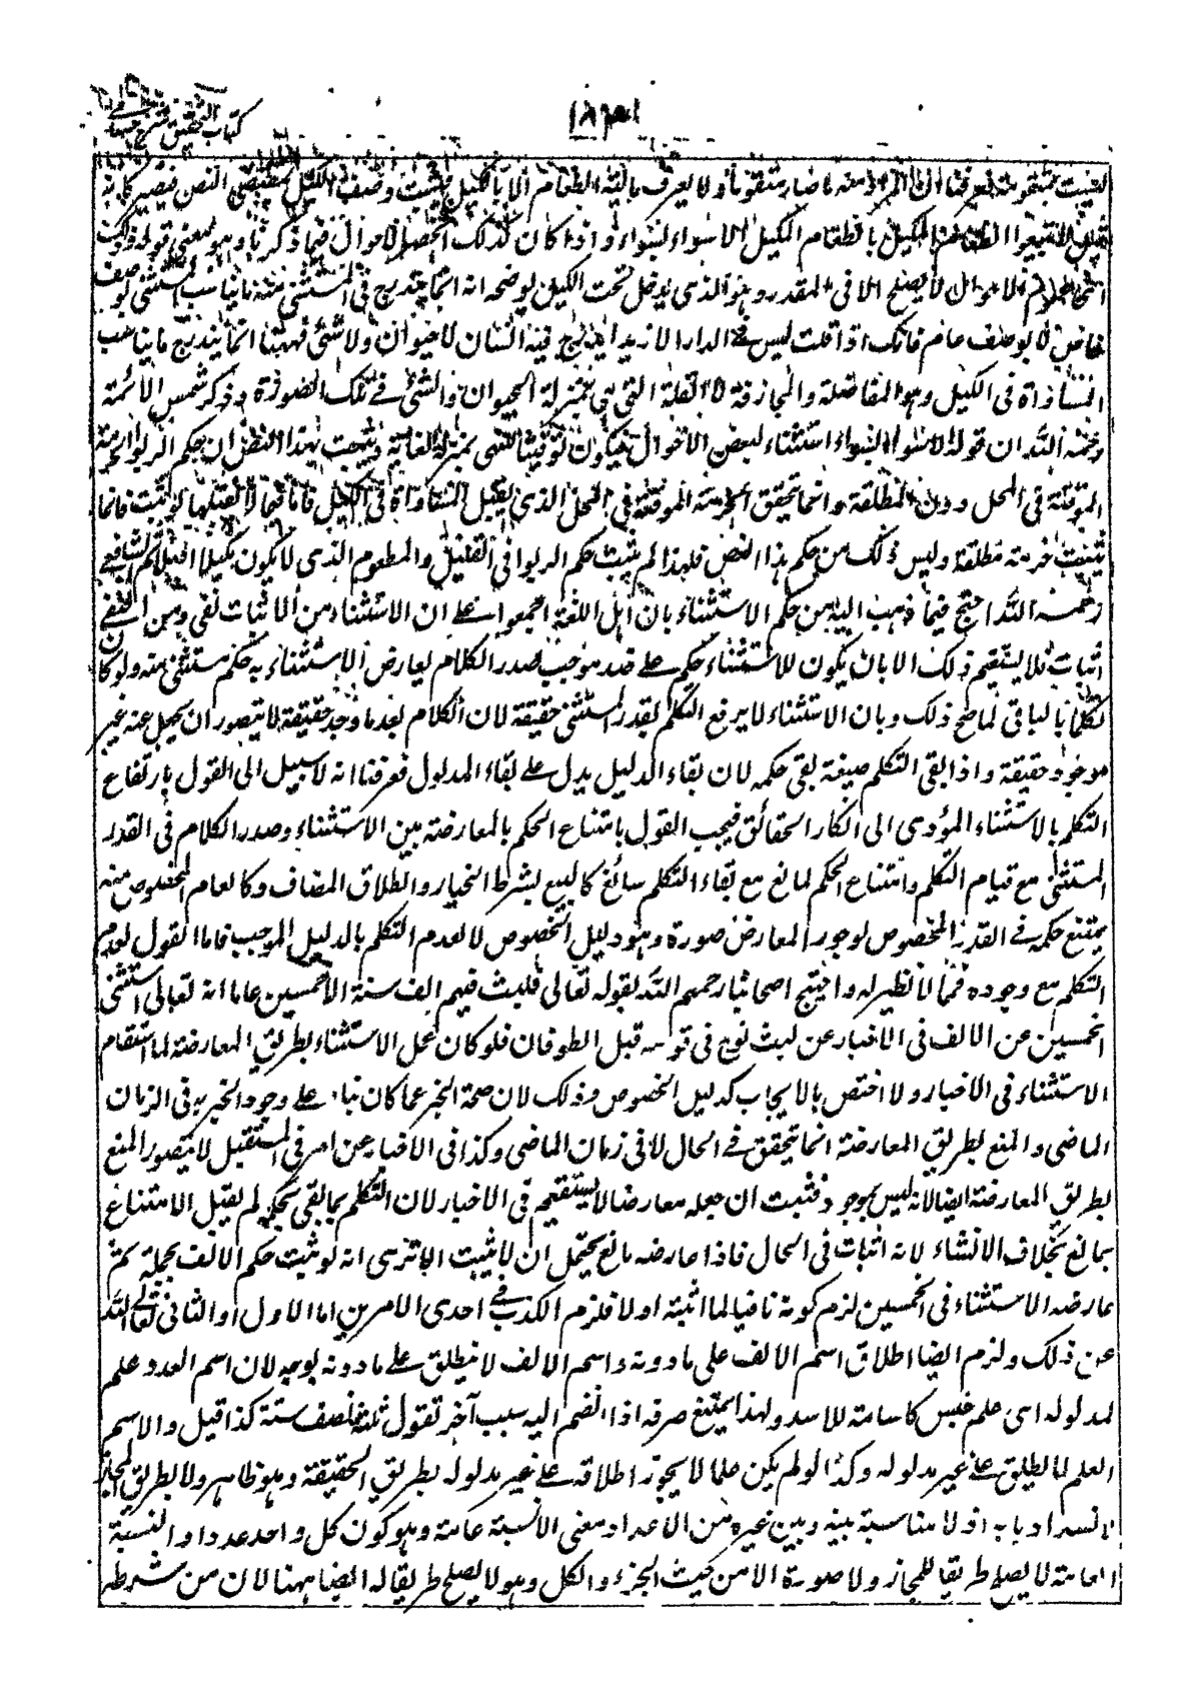 كتاب التحقيق شرح
ليست بمتقومة فعرفنا ان المراد منه ما صار متقوما ولا يعرف مالية الطعام الا بالكيل فيثبت وصف الكيل بمقتضى النص فيصير كانه
قيل لا تبيعوا الطعام المكيل بالطعام المكيل الا سواء بسواء واذا كان كذلك انحصر الاحوال فيما ذكرنا وهو معنى قوله
الاحوال لا يصلح الا فى المقدر وهو الذى يدخل تحت الكيل يوضحه انه انما يندرج فى المستثنى منه ما يناسب المستثنى بوصف
خاص لا بوصف عام فانك اذا قلت ليس فى الدار الا زيد اندرج فيه انسان لا حيوان ولا شئ فههنا انما يندرج ما يناسب
المساواة فى الكيل وهو المفاضلة والمجازفة لا القلة التى هى بمنزلة الحيوان والشئ فى تلك الصورة وذكر شمس الائمة
رحمه الله ان قوله الا سواء بسواء استثناء لبعض الاحوال فيكون توقيتا للنهى بمنزلة الغاية ويثبت بهذا النص ان حكم الربوا الحرمة
الموقتة فى المحل دون المطلقة وانما تحقق الحرمة الموقتة فى المحل الذى يقبل المساواة فى الكيل فاما فيما لا يقبلها لو ثبت فانما
يثبت حرمة مطلقة وليس ذلك من حكم هذا النص فلهذا لم يثبت حكم الربوا فى القليل والمطعوم الذى لا يكون مكيلا اصلا ثم الشافعى
رحمه الله احتج فيما ذهب اليه من حكم الاستثناء بان اهل اللغة اجمعوا على ان الاستثناء من الاثبات نفى ومن النفى
اثبات فلا يستقيم ذلك الا بان يكون للاستثناء حكم على ضد موجب صدر الكلام يعارض الاستثناء به حكم مستثنى منه ولو كان
تكلما بالباقى لما صح ذلك وبان الاستثناء لا يرفع التكلم بقدر المستثنى حقيقة لان الكلام بعد ما وجد حقيقة لا يتصور ان يجعل عنه غير
موجود حقيقة واذا بقى التكلم صيغة بقى حكمه لان بقاء الدليل يدل على بقاء المدلول فعرفنا انه لا سبيل الى القول بارتفاع
التكلم بالاستثناء المؤدى الى انكار الحقائق فيجب القول بامتناع الحكم بالمعارضة بين الاستثناء وصدر الكلام فى القدر
المستثنى مع قيام التكلم وامتناع الحكم لمانع مع بقاء التكلم سائغ كالبيع بشرط الخيار والطلاق المضاف وكالعام المخصوص منه
يمتنع حكمه فى القدر المخصوص لوجود المعارض صورة وهو دليل الخصوص لا لعدم التكلم بالدليل الموجب فاما القول بعدم
التكلم مع وجوده فمما لا نظير له واحتج اصحابنا رحمهم الله بقوله تعالى فلبث فيهم الف سنة الا خمسين عاما انه تعالى استثنى
الخمسين عن الالف فى الاخبار عن لبث نوح فى قومه قبل الطوفان فلو كان عمل الاستثناء بطريق المعارضة لما استقام
الاستثناء فى الاخبار ولا اختص بالايجاب كدليل الخصوص وذلك لان صحة الخبر عما كان بناء على وجود المخبر به فى الزمان
الماضى والمنع بطريق المعارضة انما يتحقق فى الحال لا فى زمان الماضى وكذا فى الاخبار عن امر فى المستقبل لا يتصور المنع
بطريق المعارضة ايضا لانه ليس بموجود فثبت ان جعله معارضا لا يستقيم فى الاخبار لان التكلم بما بقى بحكمه لم يقبل الامتناع
بمانع بخلاف الانشاء لانه اثبات فى الحال فاذا عارضه مانع يحتمل ان لا يثبت الا ترى انه لو ثبت حكم الالف بجملته ثم
عارضه الاستثناء فى الخمسين لزم كونه نافيا لما اثبته اولا فلزم الكذب فى احدى الامرين اما الاول او الثانى تعالى الله
عن ذلك ولزم ايضا اطلاق اسم الالف على ما دونه واسم الالف لا ينطلق على ما دونه بوجه لان اسم العدد علم
لمدلوله اى علم جنس كاسامة للاسد ولهذا يمتنع صرفه اذا انضم اليه سبب آخر تقول ثلثة نصف ستة كذا قيل والاسم
العلم لا يطلق على غير مدلوله وكذا لو لم يكن علما لا يجوز اطلاقه على غير مدلوله بطريق الحقيقة وهو ظاهر ولا بطريق المجاز
لانسداد بابه اذ لا مناسبة بينه وبين غيره من الاعداد معنى الا نسبة عامة وهو كون كل واحد عددا والنسبة
العامة لا يصلح طريقا للمجاز ولا صورة الا من حيث الجزء والكل وهو لا يصلح طريقا له ايضا ههنا لان من شرطه